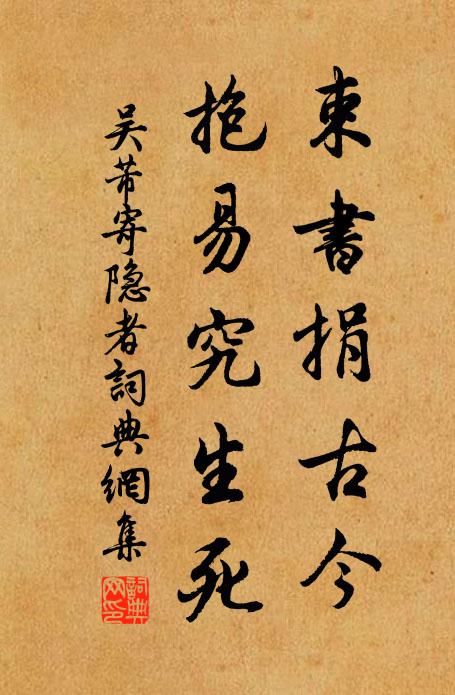 束書捐古今
抱易究生死
吴芾寄隐者詞典網集
詞典網印